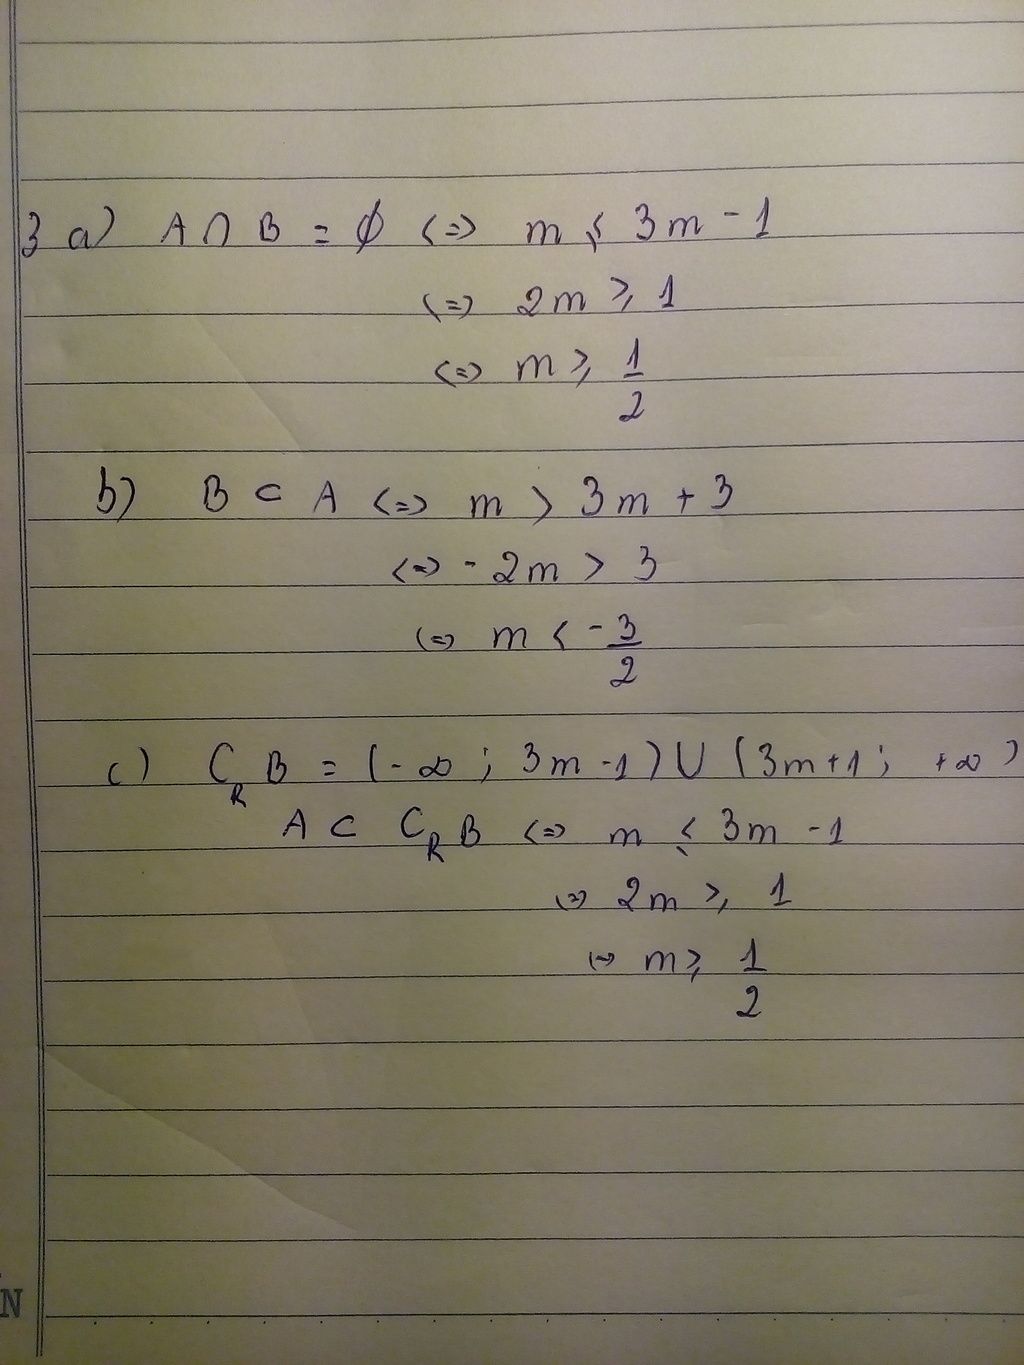 3 a) A ∩ B = ∅ <=> m ≤ 3m - 1
<=> 2m ≥ 1
<=> m ≥ 1/2
b) B ⊂ A <=> m > 3m + 3
<=> - 2m > 3
<=> m < -3/2
c) C_R B = (-∞ ; 3m -1) ∪ (3m+1 ; +∞)
A ⊂ C_R B <=> m ≤ 3m -1
<=> 2m ≥ 1
<=> m ≥ 1/2
N